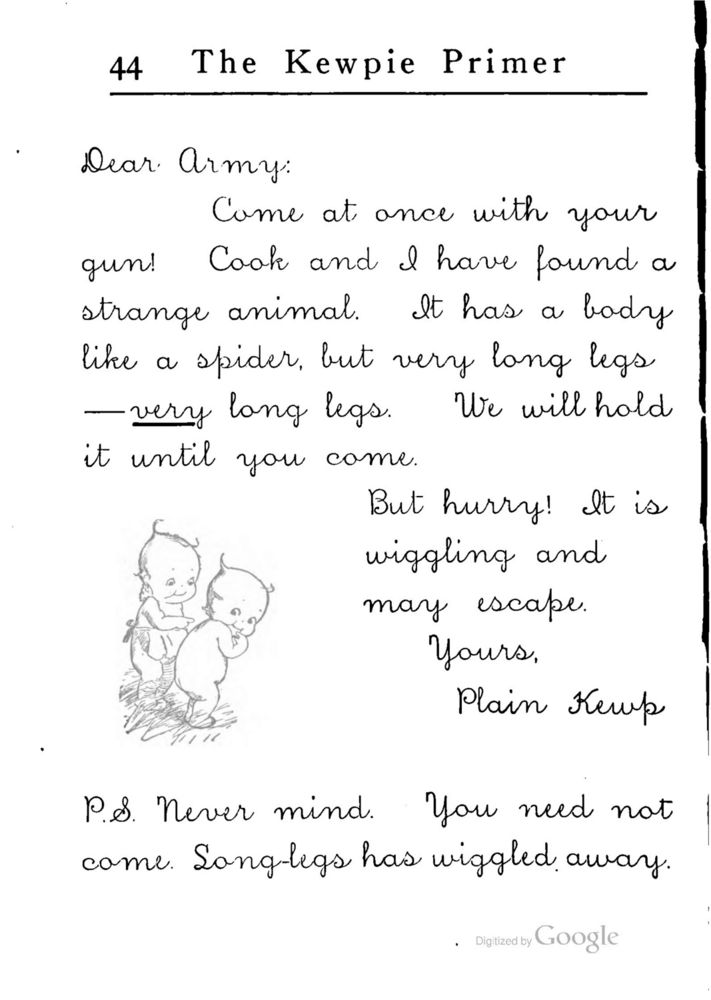 44 The Kewpie Primer
Dear Army:
Come at once with your
gun! Cook and I have found a
strange animal. It has a body
like a spider, but very long legs
—very long legs. We will hold
it until you come.
But hurry! It is
wiggling and
may escape.
Yours,
Plain Kewp
P.S. Never mind. You need not
come. Long-legs has wiggled away.
Digitized by Google